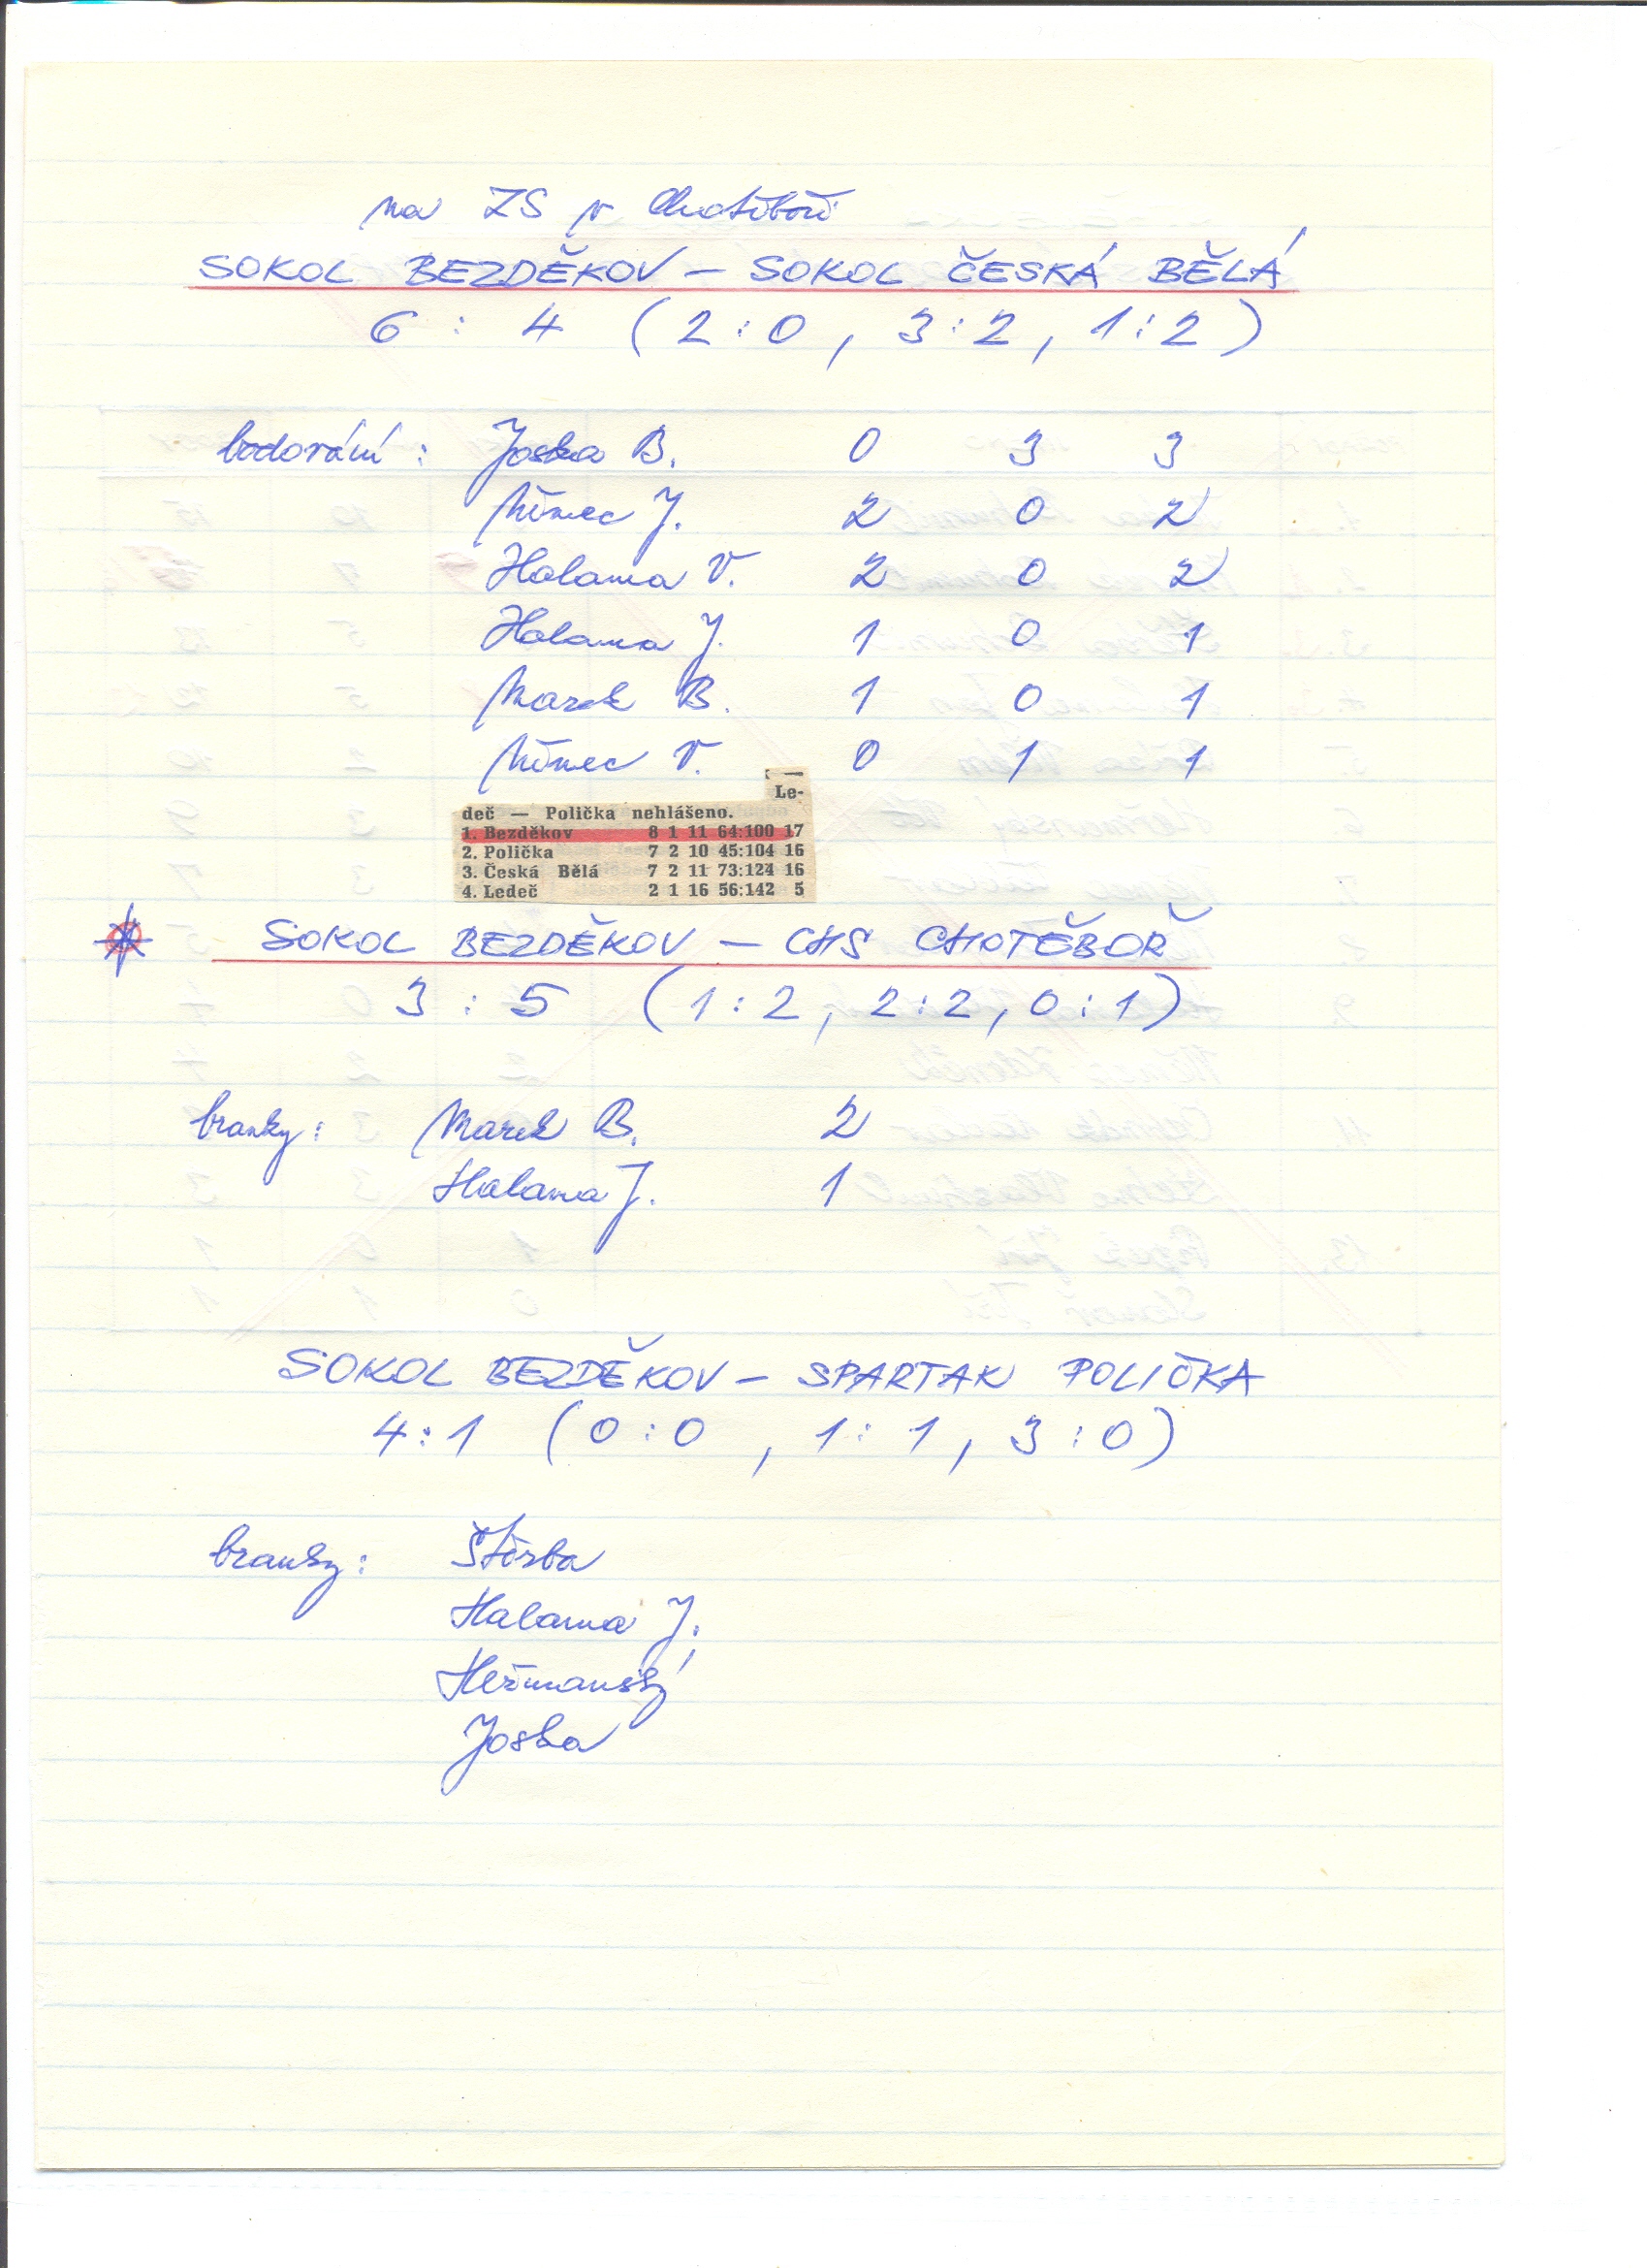 na ZS v Chotěboři
SOKOL BEZDĚKOV – SOKOL ČESKÁ BĚLÁ
6 : 4 ( 2 : 0 , 3 : 2 , 1 : 2 )
bodování : Joska B. 0 3 3
Němec J. 2 0 2
Halama V. 2 0 2
Halama J. 1 0 1
Marek B. 1 0 1
Němec V. 0 1 1
Le-
deč — Polička nehlášeno.
1. Bezděkov 8 1 11 64:100 17
2. Polička 7 2 10 45:104 16
3. Česká Bělá 7 2 11 73:124 16
4. Ledeč 2 1 16 56:142 5
SOKOL BEZDĚKOV – CHS CHOTĚBOŘ
3 : 5 ( 1 : 2 , 2 : 2 , 0 : 1 )
branky : Marek B. 2
Halama J. 1
SOKOL BEZDĚKOV – SPARTAK POLIČKA
4 : 1 ( 0 : 0 , 1 : 1 , 3 : 0 )
branky : Štěrba
Halama J.
Heřmanský
Joska